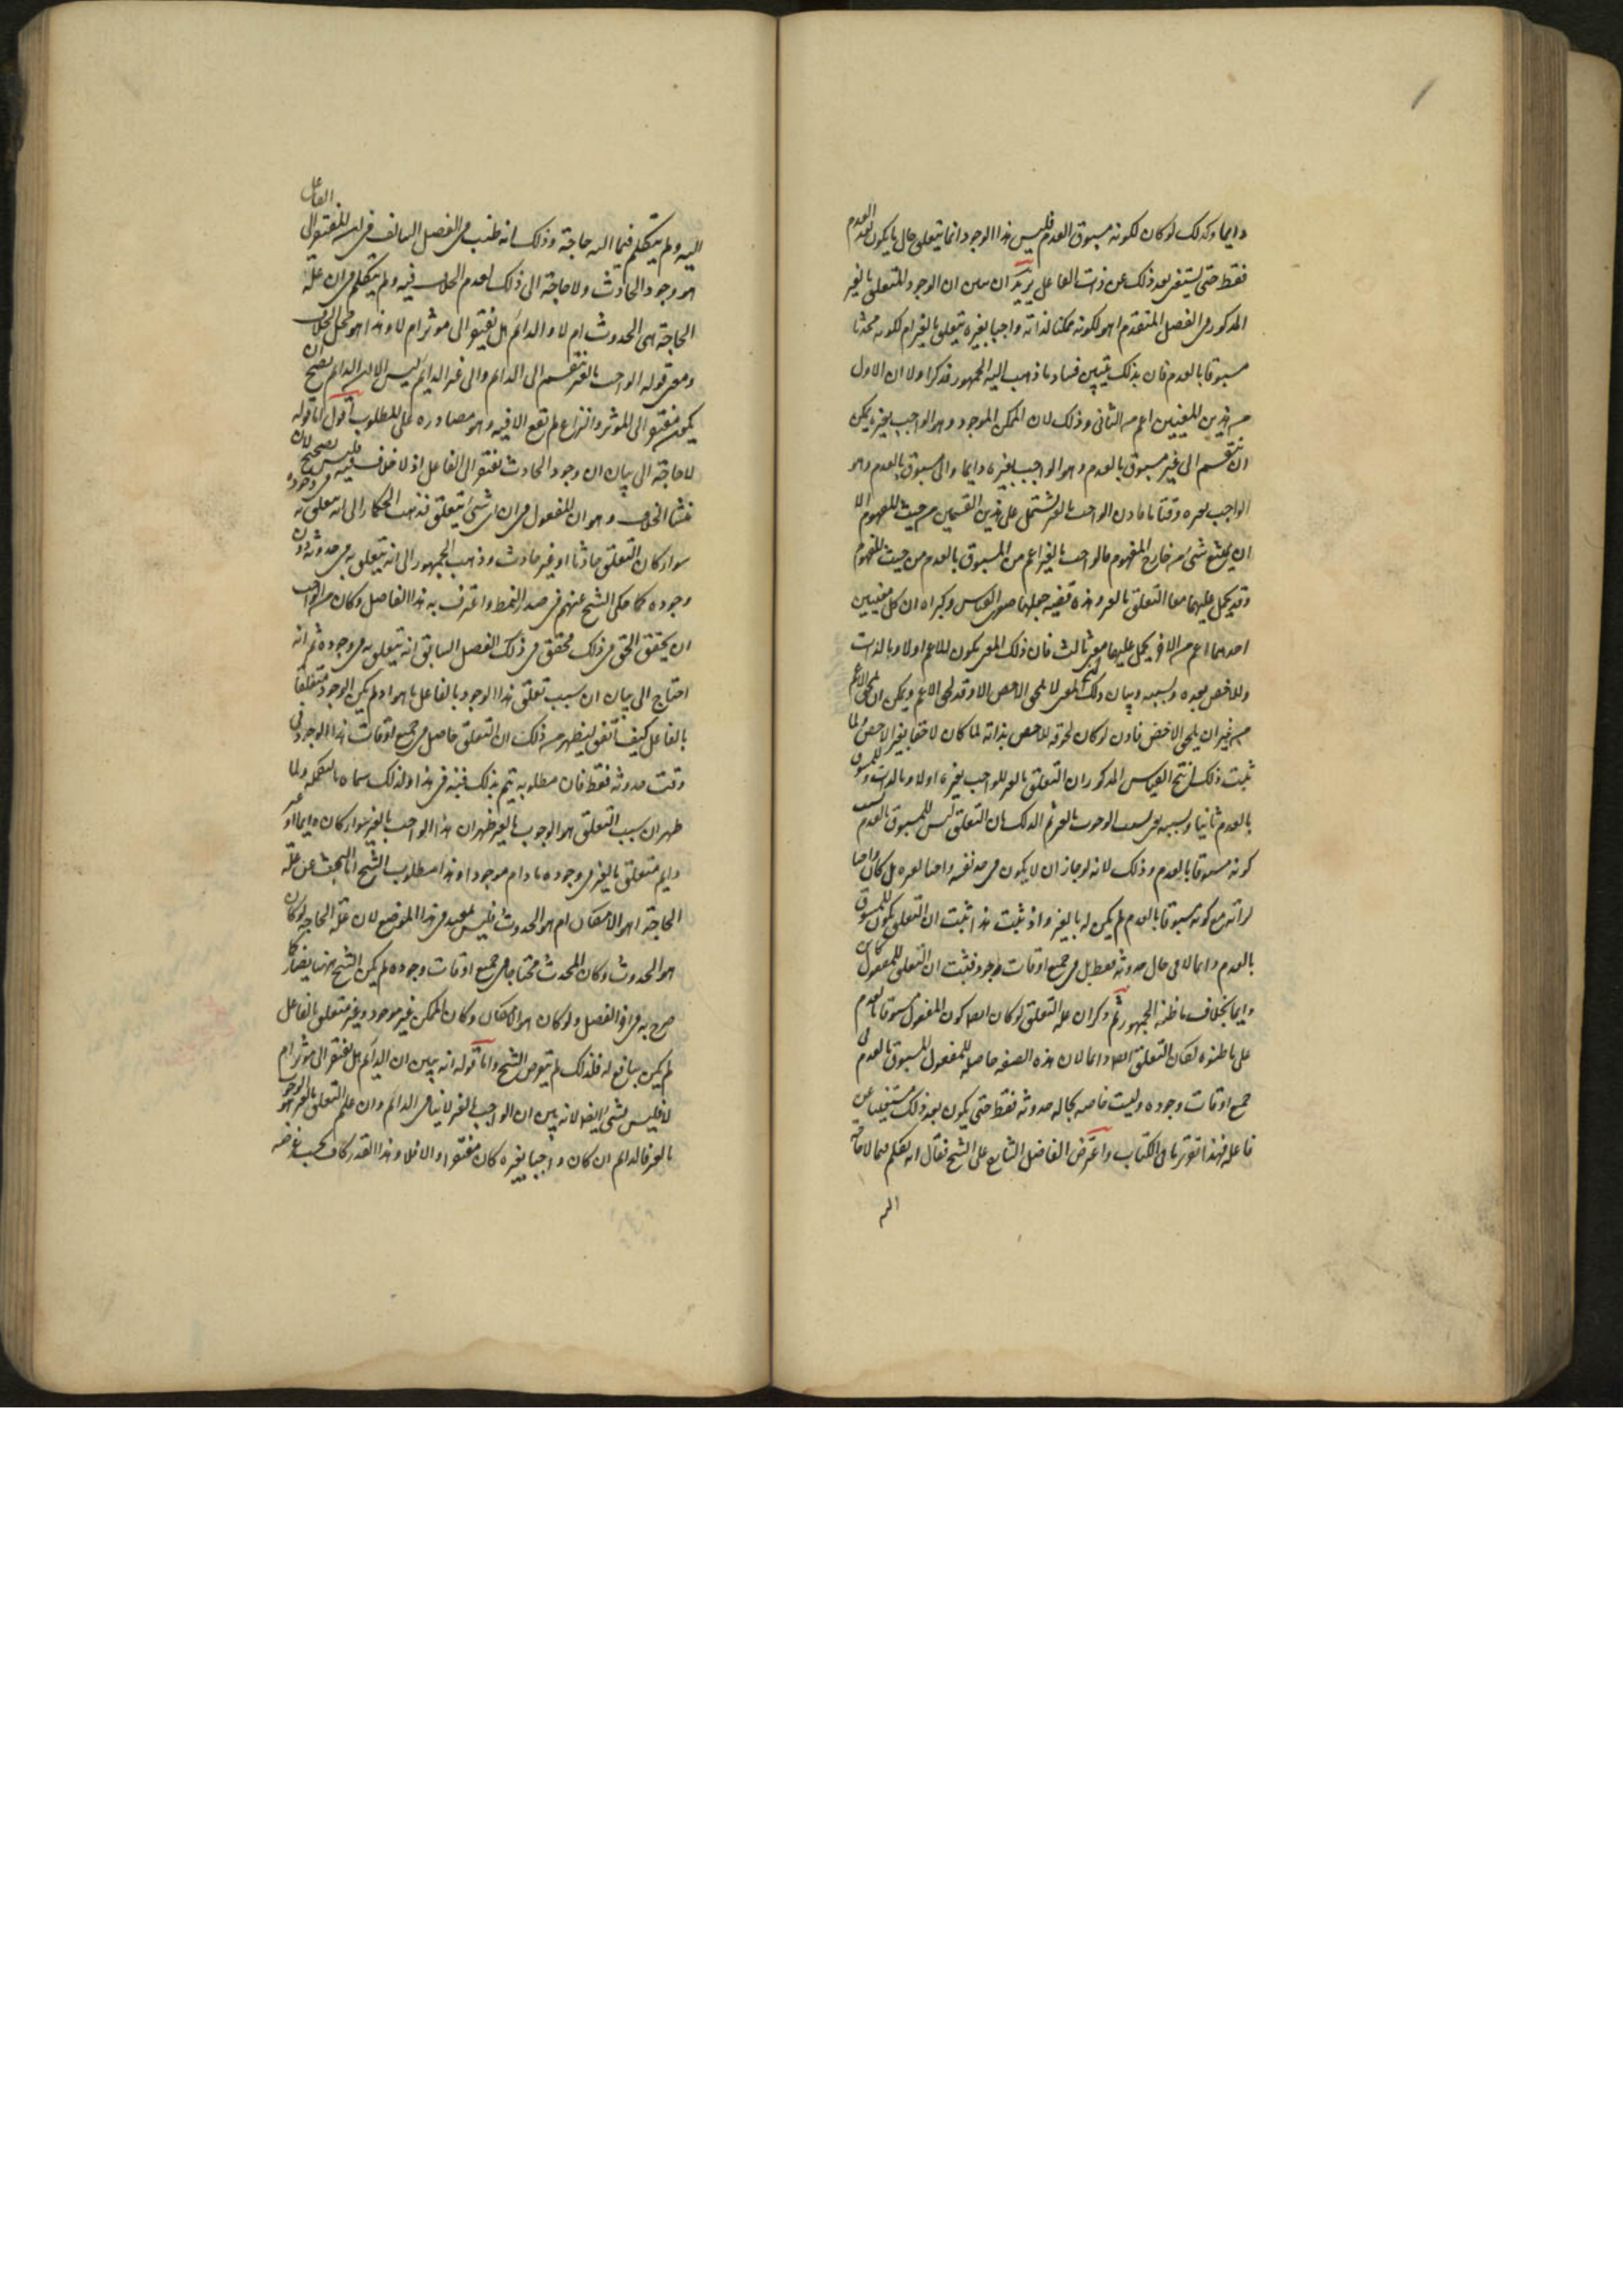 دايما وكذلك لوكان لكونه مسبوق العدم فليس هذا الوجود انما يتعلق حال ما يكون بعد العدم
فقط حتى يستغنى بعد ذلك عن ذلك الفاعل يريد ان يبين ان الوجود المتعلق بالغير
المذكور فى الفصل المتقدم اهو لكونه ممكنا لذاته واجبا بغيره يتعلق بالغير ام لكونه محدثا
مسبوقا بالعدم فان بذلك يتبين فساد ما ذهب اليه الجمهور فذكر اولا ان الاول
من هذين المعنيين اعم من الثانى وذلك لان الممكن الموجود وهو الواجب بغيره يمكن
ان ينقسم الى غير مسبوق بالعدم وهو الواجب بغيره دايما والى مسبوق بالعدم وهو
الواجب بغيره وقتا ما فاذن الواجب بالغير يشتمل على هذين القسمين من حيث المفهوم الا
ان يمنع شئ من خارج المفهوم فالواجب بالغير اعم من المسبوق بالعدم من حيث المفهوم
وقد يحمل عليهما معا التعلق بالغير وهذه قضيه جعلها صغرى القياس وكبراه ان كل معنيين
احدهما اعم من الاخر يحمل عليهما معنى ثالث فان ذلك المعنى يكون للاعم اولا وبالذات
وللاخص بعده وبسببه وبيان ذلك ان المعنى لا يلحق الاخص الا وقد لحق الاعم ويمكن ان يلحق الاعم
من غير ان يلحق الاخص فاذن لو كان لحوقه للاخص بذاته لما كان لاحقا بغير الاخص ولما
ثبت ذلك انتج القياس المذكور ان التعلق بالغير للواجب بغيره اولا وبالذات وللمسبوق
بالعدم ثانيا وبسببه اى بسبب الوجوب بالغير ثم اكد ذلك بان التعلق ليس للمسبوق بالعدم بسبب
كونه مسبوقا بالعدم وذلك لانه لو جاز ان لا يكون فى حد نفسه واجبا لغيره بل كان واجبا
لذاته مع كونه مسبوقا بالعدم لم يكن له بالغير واذ ثبت هذا ثبت ان التعلق يكون للمسبوق
بالعدم دايما لا فى حال حدوثه فقط بل فى جميع اوقات وجوده فثبت ان التعلق للمفعول كائن
دايما بخلاف ما ظنه الجمهور ثم ذكر ان علة التعلق لو كان ايضا كون المفعول مسبوقا بالعدم
على ما ظنوه لكان التعلق ايضا دايما لان هذه الصفه حاصله للمفعول المسبوق بالعدم فى
جميع اوقات وجوده وليست خاصه بحاله حدوثه فقط حتى يكون بعد ذلك مستغنيا عن
فاعله فهذا تقرير ما فى الكتاب واعترض الفاضل الشارح على الشيخ فقال انه تكلم فيما لا حاجة
اليه
الفاعل
اليه ولم يتكلم فيما اليه حاجة وذلك انه اطنب فى الفصل السالف فى ان المفتقر الى
هو وجود الحادث ولا حاجة الى ذلك لعدم الخلاف فيه ولم يتكلم فى ان علة
الحاجة اهى الحدوث ام لا والدائم هل يفتقر الى موثر ام لا وهذا هو محل الخلاف
ومعنى قوله الواجب بالغير ينقسم الى الدائم والى غير الدائم ليس الا ان الدائم يصح ان
يكون مفتقرا الى الموثر والنزاع لم يقع الا فيه وهو مصادره على المطلوب اقول اما قوله
لا حاجة الى بيان ان وجود الحادث يفتقر الى الفاعل اذ لا خلاف فيه فليس بصحيح لان
منشا الخلاف وهو ان المفعول فى ان اى شئ يتعلق فذهب الحكما الى انه يتعلق به فى وجوده
سواء كان المتعلق حادثا او غير حادث وذهب الجمهور الى انه يتعلق به فى حدوثه دون
وجوده كما حكى الشيخ عنهم فى صدر النمط واعترف به هذا الفاضل وكان من الواجب
ان يحقق الحق فى ذلك فحقق فى ذلك الفصل السابق انه يتعلق به فى وجوده ثم انه
احتاج الى بيان ان سبب تعلق هذا الوجود بالفاعل ما هو اذ لم يكن الوجود متعلقا
بالفاعل كيف اتفق ليظهر من ذلك ان التعلق حاصل فى جميع اوقات هذا الوجود او فى
وقت حدوثه فقط فان مطلوبه يتم بذلك فبينه فى هذا ولذلك سماه بالتكمله ولما
ظهر ان سبب التعلق هو الوجوب بالغير ظهر ان هذا الواجب بالغير سواء كان دايما او غير
دايم متعلق بالغير فى وجوده ما دام موجودا وهذا مطلوب الشيخ اما البحث عن علة
الحاجة اهو الامكان ام هو الحدوث فليس بمفيد فى هذا الموضع لان علة الحاجة لو كان
هو الحدوث وكان المحدث محتاجا فى جميع اوقات وجوده لم يكن الشيخ ههنا يضاره كما
صرح به فى اخر الفصل ولو كان هو الامكان وكان الممكن غير موجود وغير متعلق بالفاعل
لم يكن بنافع له فلذلك لم يتعرض الشيخ واما قوله انه يبين ان الدائم هل يفتقر الى موثر ام
لا فليس بشئ ايضا لانه بين ان الواجب بالغير لا ينافى الدائم وان علة التعلق بالغير هو الوجوب
بالغير فالدائم ان كان واجبا بغيره كان مفتقرا والا فلا وهذا القدر كاف بحسب غرضه